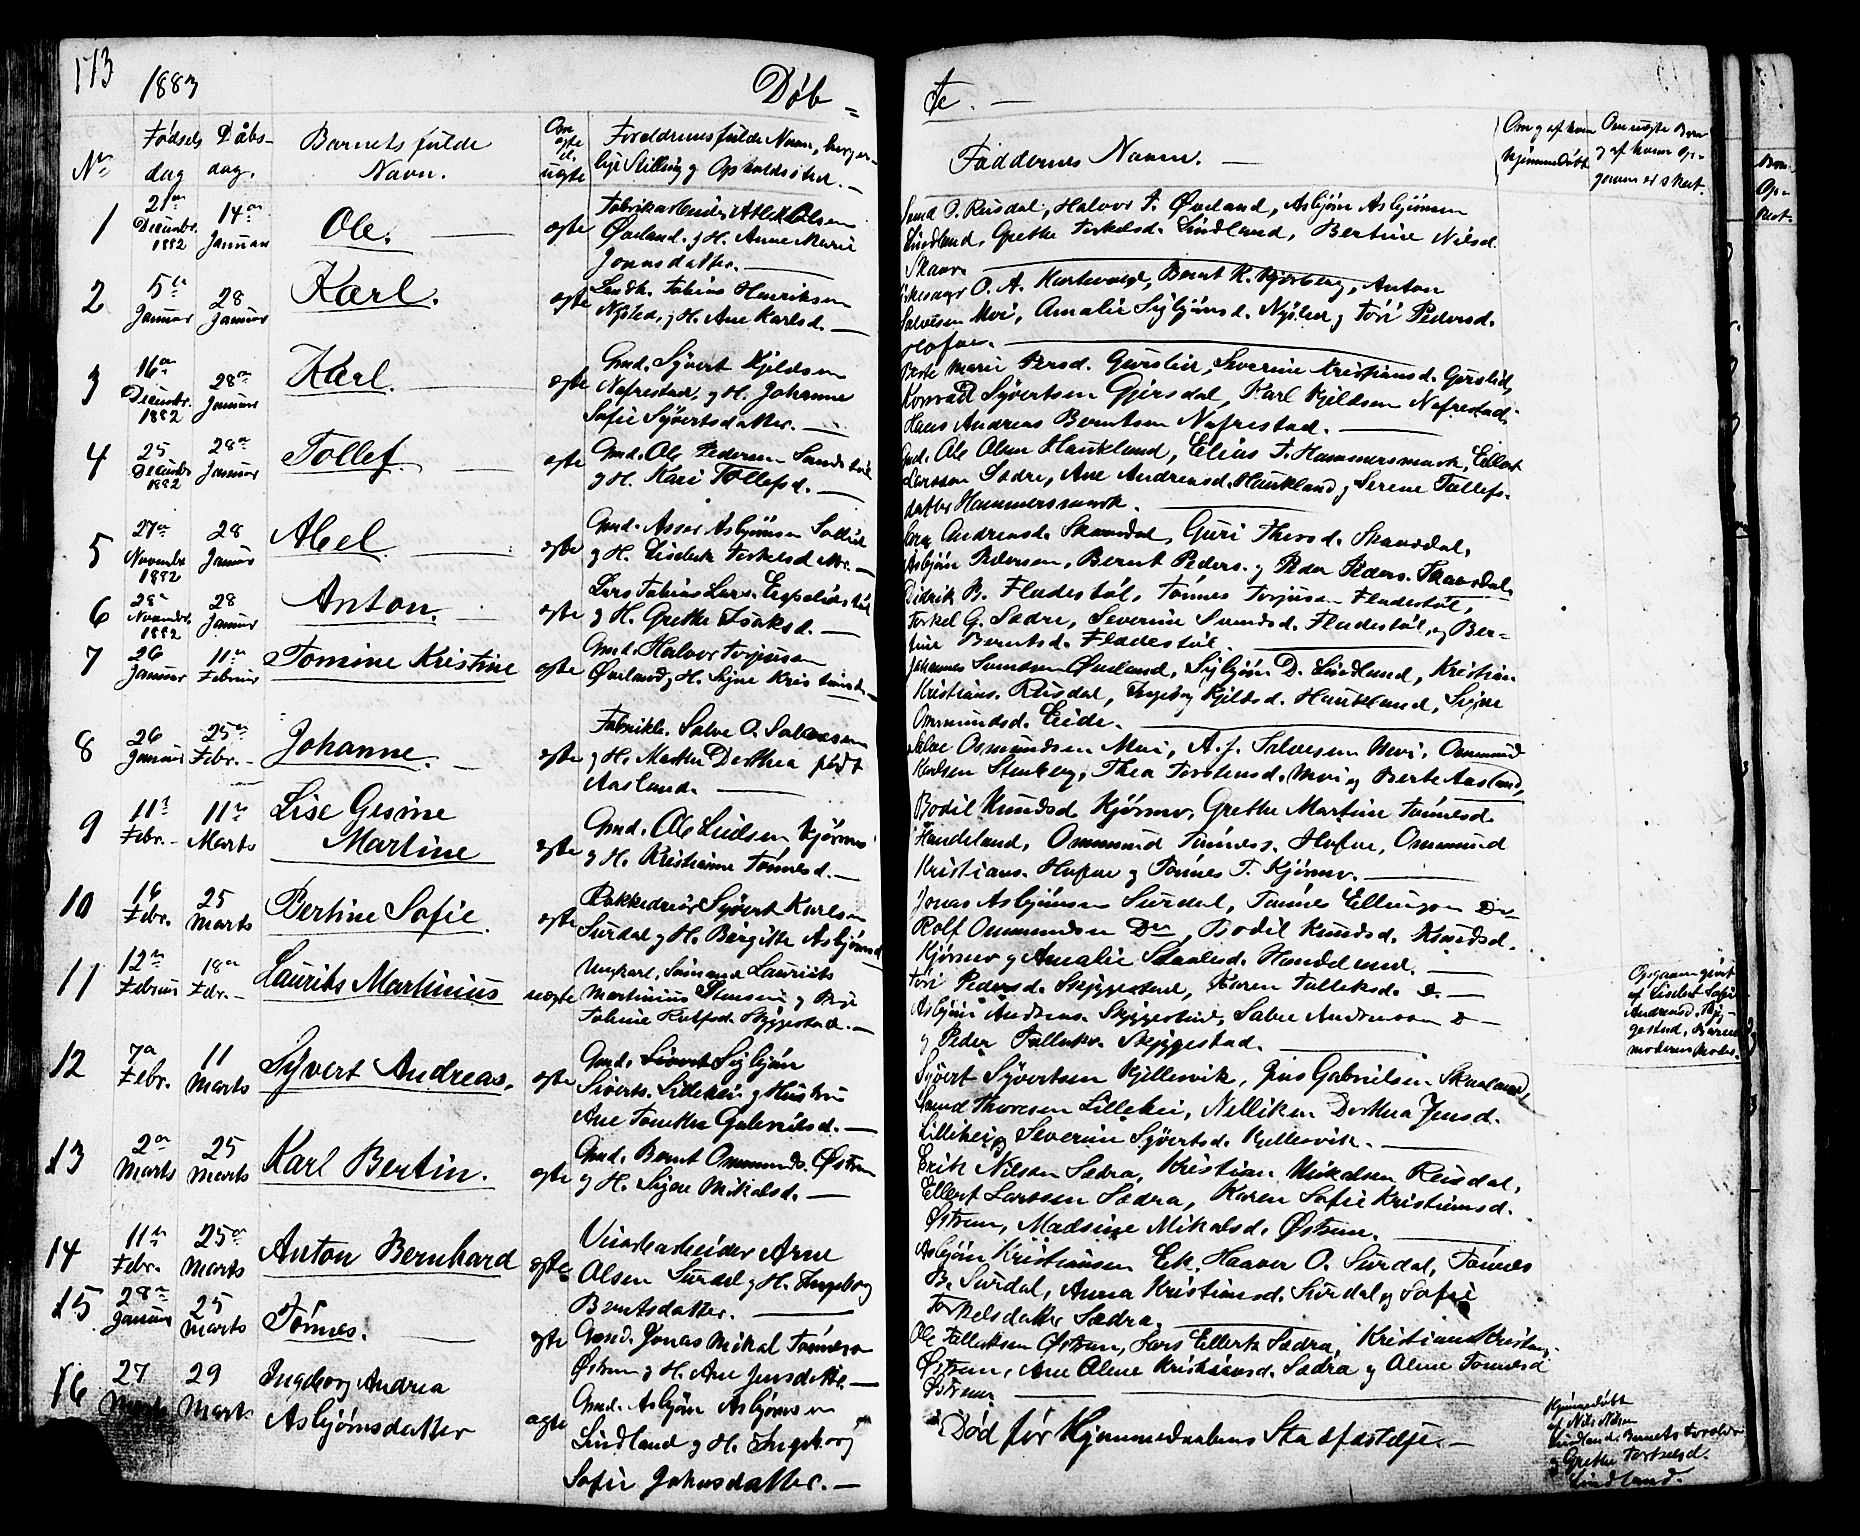 113
1883
Døb-
te. —
No
Fødsels
dag
Dåbs-
dag.
Barnets fulde
Navn.
Om
ægte
el.
uægte
Foreldrenes fulde Navn, borger-
lige Stilling og Opholdssted. —
Faddernes Navne. —
Om og af hvem
hjemmedøbt
Om uægte Barn
og af hvem Op-
gaven er skeet.
1
21de
Decembr.
1882
14de
Januar
Ole.
ægte
Fabrikarbeider Atlak Olsen
Øveland. og H. Anne Marie
Jonasdatter. —
Svend O. Rusdal, Halvor T. Øveland, Asbjørn Asbjørnsen
Lindland, Grethe Terkelsd. Lindland, Bertine Nilsd.
Skaar.
2
5te
Januar
28
Januar
Karl.
ægte
Henriksen
Nysled, og H. Ane Karlsd. —
O. A. Bernt K. Bjørberg, Anton
Salvesen Moi, Amalie Sigbjørnsd. Nysled og Tøri Pedersd.
3
16de
Decembr.
1882
28de
Januar
Karl.
ægte
Gmd. Syvert Kjeldsen
Nafrestad, og H. Johanne
Sofie Syvertsdatter. —
Berte Marie Persd. Gursli, Severine Kristiansd. Gursli,
Konrad Syvertsen Gjersdal, Karl Kjeldsen Nafrestad,
Hans Andreas Berntsen Nafrestad. —
4
25
Decembr
1882
28de
Januar
Tollef.
ægte
Gmd. Ole Pedersen
og H. Kari Tollefsd. —
Gmd. Ole Olsen Haukland, Elias T. Hammersmark, Ellert
Larssen Sædre, Ane Andreasd. Haukland og Serene Tollefs-
datter Hammersmark. —
5
27de
Novembr
1882
28
Januar
Abel.
ægte
Gmd. Asser Asbjørnsen
og H. Lisebet Terkelsd. —
Andreasd. Skaardal, Guri Theisd. Skaardal,
Asbjørn Pedersen, Bernt Peders. og Peder Peders. Skaardal.
6
28de
Novembr.
1882
28
Januar
Anton.
ægte
Lars Tobias Lars. Eegelandsstøl
og H. Grethe Isaksd. —
Didrik B. Fladestøl, Tønnes Torjusen Fladestøl,
Terkel G. Sædre, Severine Svendsd. Fladestøl og Ber-
tine Berntsd. Fladestøl. —
7
26
Januar
11te
Februar
Tomine Kristine
ægte
Gmd. Halvor Torjussen
Øveland og H. Signe Kristiansd. —
Johannes Svendsen Øveland, Sigbjørn D. Lindland, Kristian
Kristians. Rusdal, Ingeborg Kjeldsd. Haukland, Signe
Ommundsd. Eide. —
8
26
Januar
25de
Febr. —
Johanne.
ægte
Fabrikk. Salve O. Salvesen
og H. Marthe Dorthea født
Aasland. —
Salve Osmundsen Moi, A. J. Salvesen Moi, Ommund
Karlsen Stenberg, Thea Torstensd. Moi og Berte Aasland,
9
11te
Febr. —
11te
Marts
Lise Gesine
Martine
ægte
Gmd. Ole Kjørmo
og H. Kristianne Tønnesd. —
Bodil Knudsd. Kjørmo, Grethe Martine Tønnesd.
Handeland, Ommund Tønnes. Hafsø, Ommund
Kristians. Hafsø og Tønnes T. Kjørmo. —
10
16
Febr.
25
Marts
Bertine Sofie.
ægte
Syvert Karlsen
Surdal og H. Birgitte Asbjørnsd.
Jonas Asbjørnsen Surdal, Tønnes Ellingsen Do
Rolf Ommundsen Do, Bodil Knudsd. Knudsd.
Kjørmo og Amalie Staalesd. Handeland. —
11
12te
Februar
18de
Febr. —
Laurits Martinius
uægte
Ungkarl, Sømand Laurits
Martinius Stensen og Pige
Tobine Rolfsd. Skjeggestad. —
Tøri Pedersd. Skjeggestad, Karen Tolleksd. D. —
Asbjørn Andreas. Skjeggestad, Salve Andreassen D —
og Peder Tolleks. Skjeggestad. —
Opgaven gjort
af Lisebet Sofie
Andreasd. Skjeg-
gestad, Barne-
moderens Moder.
12
7de
Febr.
11
Marts
Syvert Andreas.
ægte
Gmd. Sivert Sigbjørn
Siverts. Lillehei og Hustru
Ane Tomithea Gabrielsd. —
Syvert Syvertsen Kjellesvik, Jens Gabrielsen Skaaland,
Svend Thoresen Lillehei, Nelliken Dorthea Jensd.
Lillehei og Severine Syvertsd. Kjellesvik. —
13
2de
Marts
25
Marts
Karl Bertin.
ægte
Gmd. Bernt Ommunds. Østrem
og H. Signe Mikalsd. —
Erik Nilsen Sædra, Kristian Mikalsen Reusdal,
Ellert Larssen Sædra, Karen Sofie Kristiansd.
Østrem, Madsine Mikalsd. Østrem. —
14
11te
Febr.
25de
Marts
Anton Bernhard
ægte
Arne
Olsen Surdal og H. Ingeborg
Berntsdatter. —
Asbjørn Kristiansen Eik, Haaver O. Surdal, Tønnes
B. Surdal, Anna Kristiansd. Surdal og Sofie
Terkelsdatter Sædra. —
15
28de
Januar
25
Marts
Tønnes.
ægte
Gmd. Jonas Mikal Tønnesen
Østrem og H. Ane Jensdatter. —
Ole Tolleksen Østrem, Lars Ellerts. Sædra, Kristian Kristens.
Østrem, Ane Oline Kristiansd. Sædra og Oline Tønnesd
Østrem. —
16
27
Marts
29
Marts
Ingeborg Andrea
Asbjørnsdatter
ægte
Gmd. Asbjørn Asbjørnsen
Lindland og H. Ingeborg
Sofie Johnsdatter. —
Død før Hjemmedaabens Stadfæstelse. —
Hjemmedøbt
af Nils Nilsen
Lindland. Barnets Forældre
og Grethe Terkelsd.
Lindland.